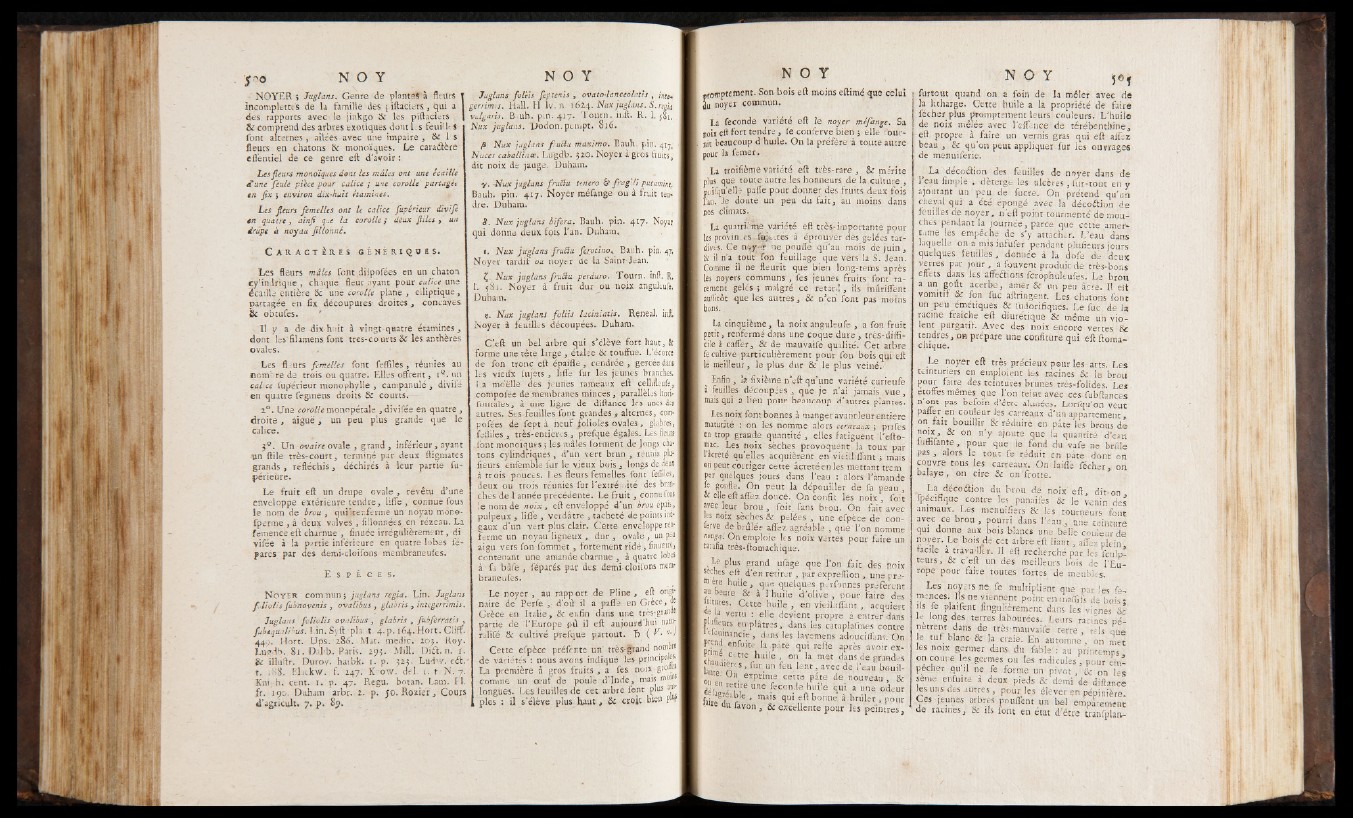 500 NOY
NOYER ; Juglans. Genre de plantes à fleurs
incomplettes de la famille des piſtaciers , qui a
des rapports avec le jinkgo & les piſtaciers
& comprend des arbres exotiques dont les feuilles
ſont alternes , ailées avec une impaire , & les
fleurs en chatons & monoïques. Le caractère
eſſentiel de ce genre eſt d'avoir :
Les fleurs monoïques dont les mâles ont une écaille
d'une ſeule pièce pour calice ; une corolle partagée
en ſix ; environ dix-huit étamines.
Les fleurs femelles ont le calice ſupérieur diviſé
en quatre , ainſi que la corolle ; deux ſtiles , un
drupe à noyau ſillonné.
CARACTÈRES GÉNÉRIQUES.
Les fleurs mâles ſont diſpoſées en un chaton
cylindrique , chaque fleur ayant pour calice une
écaille entière & une corolle plane , elliptique ,
partagée en ſix découpures droites , concaves
& obtuſes.
Il y a de dix huit à vingt-quatre étamines ,
dont les filamens ſont très-courts & les anthères
ovales.
Les fleurs femelles ſont ſeſſiles , réunies au
nombre de trois ou quatre. Elles offrent , 1°. un
calice ſupérieur monophylle , campanulé , diviſé
en quatre ſegmens droits & courts.
2°. Une corolle monopétale , diviſée en quatre ,
droite , aiguë , un peu plus grande que le
calice.
3°. Un ovaire ovale , grand , inférieur , ayant
un ſtile très-court , terminé par deux ſtigmates
grands , réfléchis , déchirés à leur partie ſu-
périeure.
Le fruit eſt un drupe ovale , revêtu d'une
enveloppe extérieure tendre , liſſe , connue ſous
le nom de brou , qui renferme un noyau mono-
ſperme , à deux valves , ſillonnées en rézeau. La
ſemence eſt charnue , ſinuée irrégulièrement , di-
viſée à la partie inférieure en quatre lobes ſé-
parés par des demi-cloiſons membraneuſes.
ESPÈCES.
NOYER commun ; juglans regia. Lin. Juglans
foliolis ſubnovenis , ovalibus , glabris , integerrimis.
Juglans foliolis ovalibus , glabris , ſubſerratis ,
ſubaequalibus. Lin. Syſt. plant. 4. p. 164. Hort. Cliff.
449. Hort. Ups. 286. Mat. medic. 203. Roy.
Lugdb. 81. Dalib. Paris. 293. Mill. Dict. n. 1.
& illuſtr. Duroy. harbk. 1. p. 323. Ludw. ect.
t. 188. Blackw. f. 247. Know. del. 1. t N. 7.
Kniph. cent. 1. p. 47. Regn. botan. Lam. Fl.
fr. 190. Duham arbr. 2. p. 50. Rozier , Cours
d'agricult. 7. p. 89.
NOY
Juglans foliis ſeptenis , ovato-lanceolatis , inte-
gerrimis. Hall. Helv. n. 1624. Nux juglans. S. regia
vulgaris. Bauh. pin. 417. Tourn. inſt. R. I. 581.
Nux juglans. Dodon. pempt. 816.
β Nux juglans fructu maximo. Bauh. pin. 417.
Nuces caballinæ. Lugdb. 320. Noyer à gros fruits,
dit noix de jauge. Duham.
γ. Nux juglans fructu tenero & fragili putamine.
Bauh. pin. 417. Noyer méſange ou à fruit ten-
dre. Duham.
δ. Nux juglans bifera. Bauh. pin. 417. Noyer
qui donna deux fois l'an. Duham.
ε. Nux juglans fructu ſerotino. Bauh. pin. 417.
Noyer tardif ou noyer de la Saint-Jean.
ζ. Nux juglans fructu perduro. Tourn. inſt. R.
I. 581. Noyer à fruit dur ou noix anguleuſe.
Duham.
η. Nux juglans foliis laciniatis. Reneal. inſt.
Noyer à feuilles découpées. Duham.
C'eſt un bel arbre qui s'élève fort haut , &
forme une tête large , étalée & touffue. L'écorce
de ſon tronc eſt épaiſſe , cendrée , gercée dans
les vieux ſujets , liſſe ſur les jeunes branches.
La moëlle des jeunes rameaux eſt celluleuſe,
compoſée de membranes minces , parallèles hori-
ſontales , à une ligne de diſtance les unes des
autres. Ses feuilles ſont grandes , alternes , com-
poſées de ſept à neuf folioles ovales , glabres,
ſeſſiles , très-entières , preſque égales. Les fleurs
ſont monoïques ; les mâles forment de longs cha-
tons cylindriques , d'un vert brun , réunis plu-
ſieurs enſemble ſur le vieux bois , longs de deux
à trois pouces. Les fleurs femelles ſont ſeſſiles,
deux ou trois réunies ſur l'extrémité des bran-
ches de l'année précédente. Le fruit , connu ſous
le nom de noix , eſt enveloppé d'un brou épais,
pulpeux , liſſe , verdâtre , tacheté de points iné-
gaux d'un vert plus clair. Cette enveloppe ren-
ferme un noyau ligneux , dur , ovale , un peu
aigu vers ſon ſommet , fortement ridé , ſinueux,
contenant une amande charnue , à quatre lobes
à ſa baſe , ſéparés par des demi cloiſons mem-
braneuſes.
Le noyer , au rapport de Pline , eſt origi-
naire de Perſe , d'où il a paſſé en Grèce , de
Grèce en Italie , & enfin dans une très-grande
partie de l'Europe où il eſt aujourd'hui natu-
raliſé & cultivé preſque partout. ♄ ( V. v. )
Cette eſpèce préſente un très-grand nombre
de variétés : nous avons indiqué les principales.
La première à gros fruits , a ſes noix groſſes
comme un œuf de poule d'Inde , mais moins
longues. Les feuilles de cet arbre ſont plus am-
ples : il s'élève plus haut , & croît bien plus
NOY
promptement. Son bois eſt moins eſtimé que celui
du noyer commun.
La ſeconde variété eſt le noyer méſange. Sa
noix eſt fort tendre , ſe conſerve bien ; elle four-
nit beaucoup d'huile. On la préfère à toute autre
pour la ſemer.
La troiſième variété eſt très-rare , & mérite
plus que toute autre les honneurs de la culture ,
puiſqu'elle paſſe pour donner des fruits deux fois
l'an. Je doute un peu du fait , au moins dans
nos climats.
La quatrième variété eſt très-importante pour
les provinces ſujettes à éprouver des gelées tar-
dives. Ce noyer ne pouſſe qu'au mois de juin ,
& il n'a tout ſon feuillage que vers la S. Jean.
Comme il ne fleurit que bien long-tems après
les noyers communs , ſes jeunes fruits ſont ra-
rement gelés ; malgré ce retard , ils mûriſſent
auſſitôt que les autres , & n'en ſont pas moins
bons.
La cinquième , la noix anguleuſe , a ſon fruit
petit , renfermé dans une coque dure , très-diffi-
cile à caſſer , & de mauvaiſe qualité. Cet arbre
ſe cultive particulièrement pour ſon bois qui eſt
le meilleur , le plus dur & le plus veiné.
Enfin , la ſixième n'eſt qu'une variété curieuſe
à feuilles découpées , que je n'ai jamais vue ,
mais qui a lieu pour beaucoup d'autres plantes.
Les noix ſont bonnes à manger avant leur entière
maturité : on les nomme alors cerneaux ; priſes
en trop grande quantité , elles fatiguent l'eſto-
mac. Les noix sèches provoquent la toux par
l'âcreté qu'elles acquièrent en vieilliſſant ; mais
on peut corriger cette âcreté en les mettant trem-
per quelques jours dans l'eau : alors l'amande
ſe gonfle. On peut la dépouiller de ſa peau ,
& elle eſt aſſez douce. On confit les noix , ſoit
avec leur brou , ſoit ſans brou. On fait avec
les noix sèches & pelées , une eſpèce de con-
ſerve de brûlée aſſez agréable , que l'on nomme
nougat. On emploie les noix vertes pour faire un
ratafia très-ſtomachique.
Le plus grand uſage que l'on fait des noix
sèches eſt d'en retirer , par expreſſion , une pre-
mière huile , que quelques perſonnes préfèrent
au beurre & à l'huile d'olive , pour faire des
fritures. Cette huile , en vieilliſſant , acquiert
de la vertu : elle devient propre à entrer dans
pluſieurs emplâtres , dans les cataplaſmes contre
l'eſquinancie , dans les lavemens adouciſſans. On
prend enſuite la pâte qui reſte après avoir ex-
primé cette huile , on la met dans de grandes
chaudières , ſur un feu lent , avec de l'eau bouil-
lante. On exprime cette pâte de nouveau , &
on en retire une ſeconde huile qui a une odeur
déſagréable , mais qui eſt bonne à brûler , pour
faire du ſavon , & excellente pour les peintres ,
NOY 501
ſurtout quand on a ſoin de la mêler avec de
la litharge. Cette huile a la propriété de faire
ſécher plus promptement leurs couleurs. L'huile
de noix mêlée avec l'eſſence de térébenthine,
eſt propre à faire un vernis gras qui eſt aſſez
beau , & qu'on peut appliquer ſur les ouvrages
de menuiſerie.
La décoction des feuilles de noyer dans de
l'eau ſimple , déterge les ulcères , ſur-tout en y
ajoutant un peu de ſucre. On prétend qu'un
cheval qui a été épongé avec la décoction de
feuilles de noyer , n'eſt point tourmenté de mou-
ches pendant la journée , parce que cette amer-
tume les empêche de s'y attacher. L'eau dans
laquelle on a mis infuſer pendant pluſieurs jours
quelques feuilles , donnée à la doſe de deux
verres par jour , a ſouvent produit de très-bons
effets dans les affections ſcrophuleuſes. Le brou
a un goût acerbe , amer & un peu âcre. Il eſt
vomitif & ſon ſuc aſtringent. Les chatons ſont
un peu émétiques & ſudorifiques. Le ſuc de la
racine fraîche eſt diurétique & même un vio-
lent purgatif. Avec des noix encore vertes &
tendres , on prépare une confiture qui eſt ſtoma-
chique.
Le noyer eſt très précieux pour les arts. Les
teinturiers en emploient les racines & le brou
pour faire des teintures brunes très-ſolides. Les
étoffes mêmes que l'on teint avec ces ſubſtances
n'ont pas beſoin d'être alunées. Lorſqu'on veut
paſſer en couleur les carreaux d'un appartement ,
on fait bouillir & réduire en pâte les brous de
noix , & on n'y ajoute que la quantité d'eau
ſuffiſante , pour que le fond du vaſe ne brûle
pas , alors le tout ſe réduit en pâte dont on
couvre tous les carreaux. On laiſſe ſécher , on
balaye , on cire & on frotte.
La décoction du brou de noix eſt , dit-on ,
ſpécifique contre les punaiſes & le venin des
animaux. Les menuiſiers & les tourneurs font
avec ce brou , pourri dans l'eau , une teinture
qui donne aux bois blancs une belle couleur de
noyer. Le bois de cet arbre eſt liant , aſſez plein ,
facile à travailler. Il eſt recherché par les ſculp-
teurs , & c'eſt un des meilleurs bois de l'Eu-
rope pour faire toutes ſortes de meubles.
Les noyers ne ſe multiplient que par les ſe-
mences. Ils ne viennent point en maſſifs de bois ;
ils ſe plaiſent ſingulièrement dans les vignes &
le long des terres labourées. Leurs racines pé-
nètrent dans de très-mauvaiſe terre , tels que
le tuf blanc & la craie. En automne , on met
les noix germer dans du ſable : au printemps,
on coupe les germes ou les radicules , pour em-
pêcher qu'il ne ſe forme un pivot , & on les
sème enſuite à deux pieds & demi de diſtance
les uns des autres , pour les élever en pépinière.
Ces jeunes arbres pouſſent un bel empatement
de racines , & ils ſont en état d'être tranſplan-